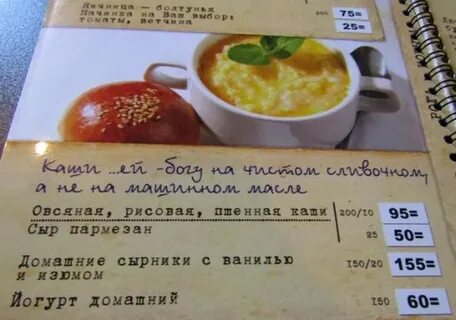 Яичница — болтунья
Начинка на Ваш выбор: 200 75=
томаты, ветчина 25=
Каши ...ей -богу на чистом сливочном,
а не на машинном масле
Овсяная, рисовая, пшенная каши 200/10 95=
Сыр пармезан 25 50=
Домашние сырники с ванилью 150/20 155=
и изюмом
Йогурт домашний 150 60=